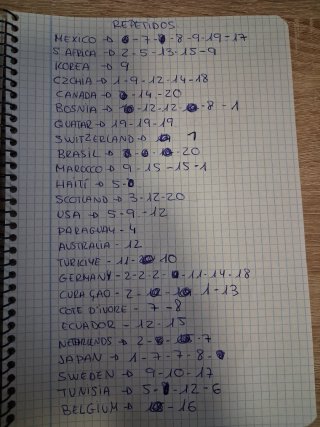 REPETIDOS
MEXICO → 7 - 8 - 9 - 19 - 17
S AFRICA → 2 - 5 - 13 - 15 - 9
KOREA → 9
CZCHIA → 1 - 9 - 12 - 14 - 18
CANADA → 14 - 20
BOSNIA → 12 - 12 - 8 - 1
QUATAR → 19 - 19 - 19
SWITZERLAND → 1
BRASIL → 20
MAROCCO → 9 - 15 - 15 - 1
HAITÍ → 5
SCOTLAND → 3 - 12 - 20
USA → 5 - 9 - 12
PARAGUAY → 4
AUSTRALIA - 12
TURKIYE - 11 - 10
GERMANY - 2 - 2 - 2 - 11 - 14 - 18
CURAÇAO → 2 - 1 - 13
COTE D'IVORE - 7 - 8
ECUADOR - 12 - 15
NETHERLNDS → 2 - 7
JAPAN → 1 - 7 - 7 - 8
SWEDEN → 9 - 10 - 17
TUNISIA → 5 - 12 - 6
BELGIUM → 16